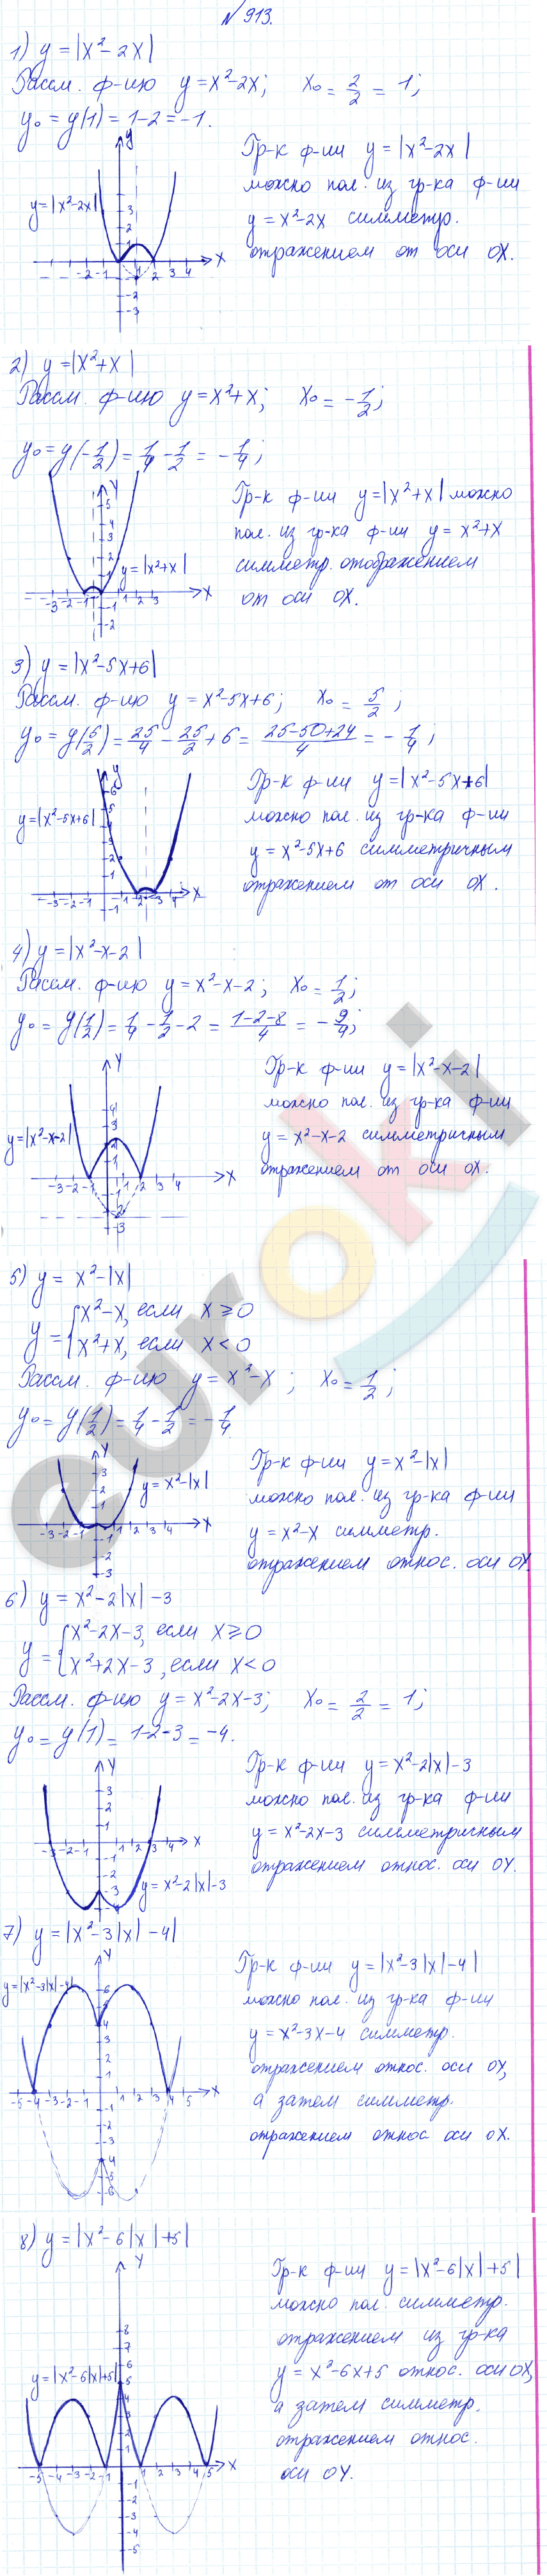 № 913.
1) y = |x²-2x|
Рассм. ф-ию y = x²-2x; x₀ = 2/2 = 1;
y₀ = y(1) = 1-2 = -1.
Гр-к ф-ии y = |x²-2x|
можно пол. из гр-ка ф-ии
y = x²-2x симметр.
отражением от оси OX.
y = |x²-2x|
2) y = |x²+x|
Рассм. ф-ию y = x²+x; x₀ = -1/2;
y₀ = y(-1/2) = 1/4 - 1/2 = -1/4;
Гр-к ф-ии y = |x²+x| можно
пол. из гр-ка ф-ии y = x²+x
симметр. отображением
от оси OX.
y = |x²+x|
3) y = |x²-5x+6|
Рассм. ф-ию y = x²-5x+6; x₀ = 5/2;
y₀ = y(5/2) = 25/4 - 25/2 + 6 = (25-50+24)/4 = -1/4;
Гр-к ф-ии y = |x²-5x+6|
можно пол. из гр-ка ф-ии
y = x²-5x+6 симметричным
отражением от оси OX.
y = |x²-5x+6|
4) y = |x²-x-2|
Рассм. ф-ию y = x²-x-2; x₀ = 1/2;
y₀ = y(1/2) = 1/4 - 1/2 - 2 = (1-2-8)/4 = -9/4;
Гр-к ф-ии y = |x²-x-2|
можно пол. из гр-ка ф-ии
y = x²-x-2 симметричным
отражением от оси OX.
y = |x²-x-2|
5) y = x²-|x|
y = { x²-x, если x ≥ 0
x²+x, если x < 0
Рассм. ф-ию y = x²-x; x₀ = 1/2;
y₀ = y(1/2) = 1/4 - 1/2 = -1/4.
Гр-к ф-ии y = x²-|x|
можно пол. из гр-ка ф-ии
y = x²-x симметр.
отражением относ. оси OX.
y = x²-|x|
6) y = x²-2|x|-3
y = { x²-2x-3, если x ≥ 0
x²+2x-3, если x < 0
Рассм. ф-ию y = x²-2x-3; x₀ = 2/2 = 1;
y₀ = y(1) = 1-2-3 = -4.
Гр-к ф-ии y = x²-2|x|-3
можно пол. из гр-ка ф-ии
y = x²-2x-3 симметричным
отражением относ. оси OY.
y = x²-2|x|-3
7) y = |x²-3|x|-4|
Гр-к ф-ии y = |x²-3|x|-4|
можно пол. из гр-ка ф-ии
y = x²-3x-4 симметр.
отражением относ. оси OY,
а затем симметр.
отражением относ. оси OX.
y = |x²-3|x|-4|
8) y = |x²-6|x|+5|
Гр-к ф-ии y = |x²-6|x|+5|
можно пол. симметр.
отражением из гр-ка
y = x²-6x+5 относ. оси OX,
а затем симметр.
отражением относ.
оси OY.
y = |x²-6|x|+5|
euroki